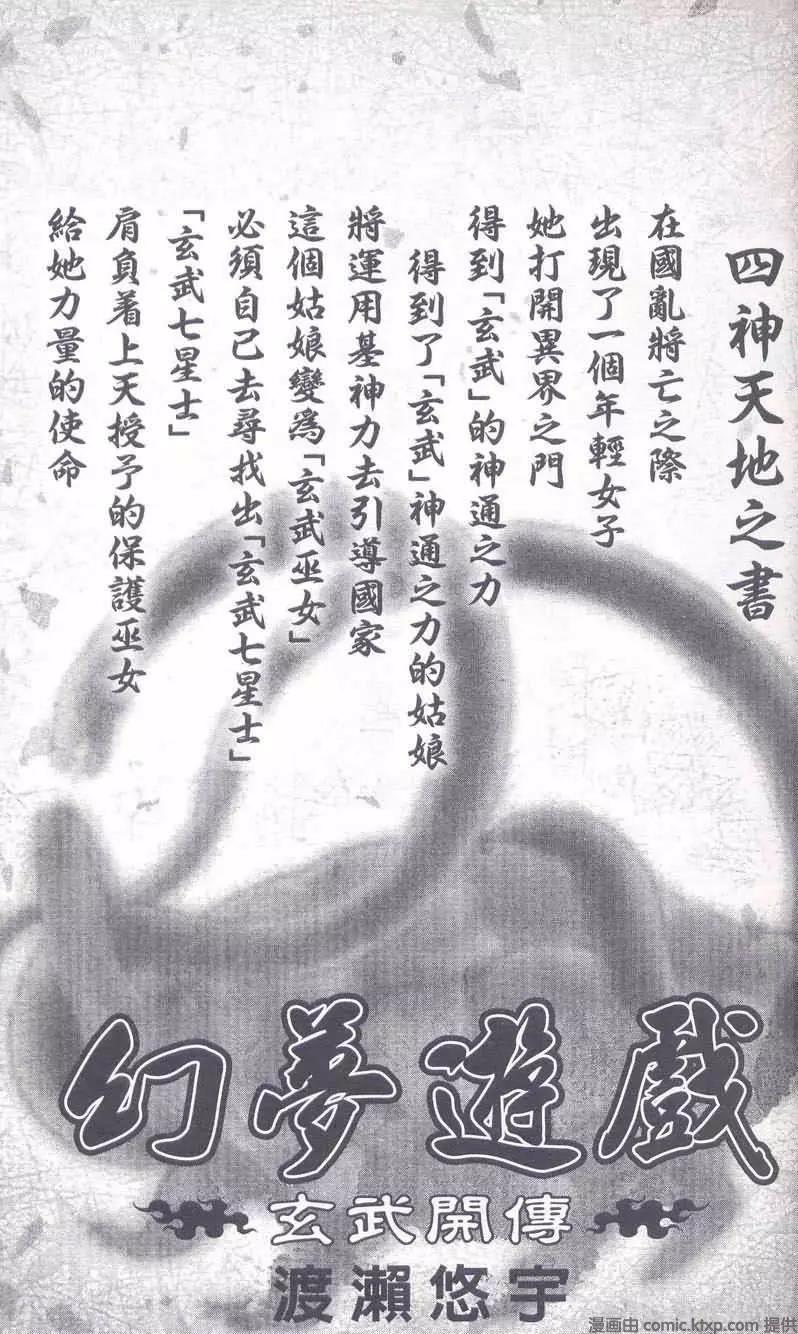 四神天地之書
在國亂將亡之際
出現了一個年輕女子
她打開異界之門
得到「玄武」的神通之力
得到了「玄武」神通之力的姑娘
將運用基神力去引導國家
這個姑娘變為「玄武巫女」
必須自己去尋找出「玄武七星士」
「玄武七星士」
肩負着上天授予的保護巫女
給她力量的使命
幻夢遊戲
玄武開傳
渡瀨悠宇
漫画由 comic.ktxp.com 提供